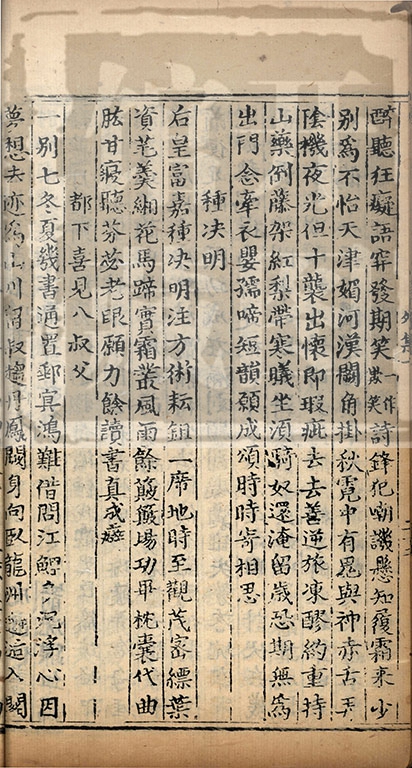 醉聽狂癡語穽發期笑一作歎笑詩鋒犯嘲譏懸知履霜來少
別爲不怡天津媚河漢闕角掛秋霓中有冕與神赤舌弄
陰機夜光但十襲出懷即瑕疵去去善逆旅凍醪約重持
山藥倒藤架紅梨帶寒曦坐須騎奴還淹留歲恐期無爲
出門念牽衣嬰孺啼短韻願成頌時時寄相思
種决明
后皇富嘉種決明注方術耘鉏一席地時至觀茂密縹葉
資芼羹緗花馬蹄實霜叢風雨餘簸簸場功畢枕囊代曲
肱甘寢聽芬苾老眼願力餘讀書真成癖
都下喜見八叔父
一別七冬夏幾書通置郵真鴻難借問江鯉字沉浮心因
夢想去迹爲山川留叔搖丹鳳闕身向臥龍洲邂逅入關